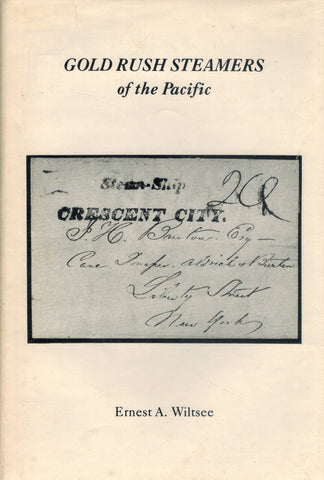 GOLD RUSH STEAMERS
of the Pacific
Steam-Ship
CRESCENT CITY.
J. H. Esq
Care
Liberty Street
New York
Ernest A. Wiltsee